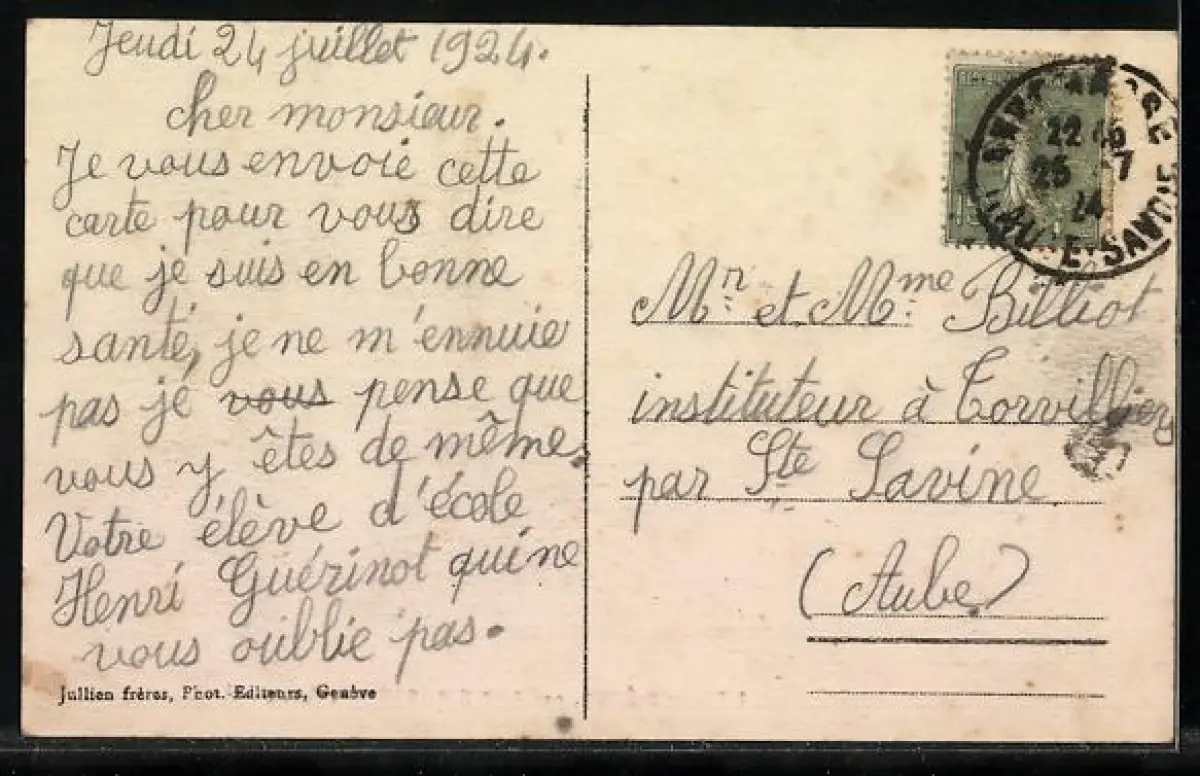 Jeudi 24 juillet 1924.
cher monsieur.
Je vous envoie cette
carte pour vous dire
que je suis en bonne
santé, je ne m'ennuie
pas je vous pense que
vous y êtes de même.
Votre élève d'école
Henri Guérinot qui ne
vous oublie pas.
Jullien frères, Phot. Editeurs, Genève
22 45
25 -7
24
HAUTE-SAVOIE
Mr. et Mme. Billiot
instituteur à Torvilliers
par Ste Savine
(Aube)